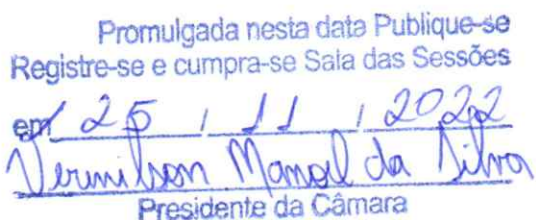 Promulgada nesta data Publique-se
Registre-se e cumpra-se Sala das Sessões
em 25 / 11 / 2022
Vermilson Manoel da Silva
Presidente da Câmara